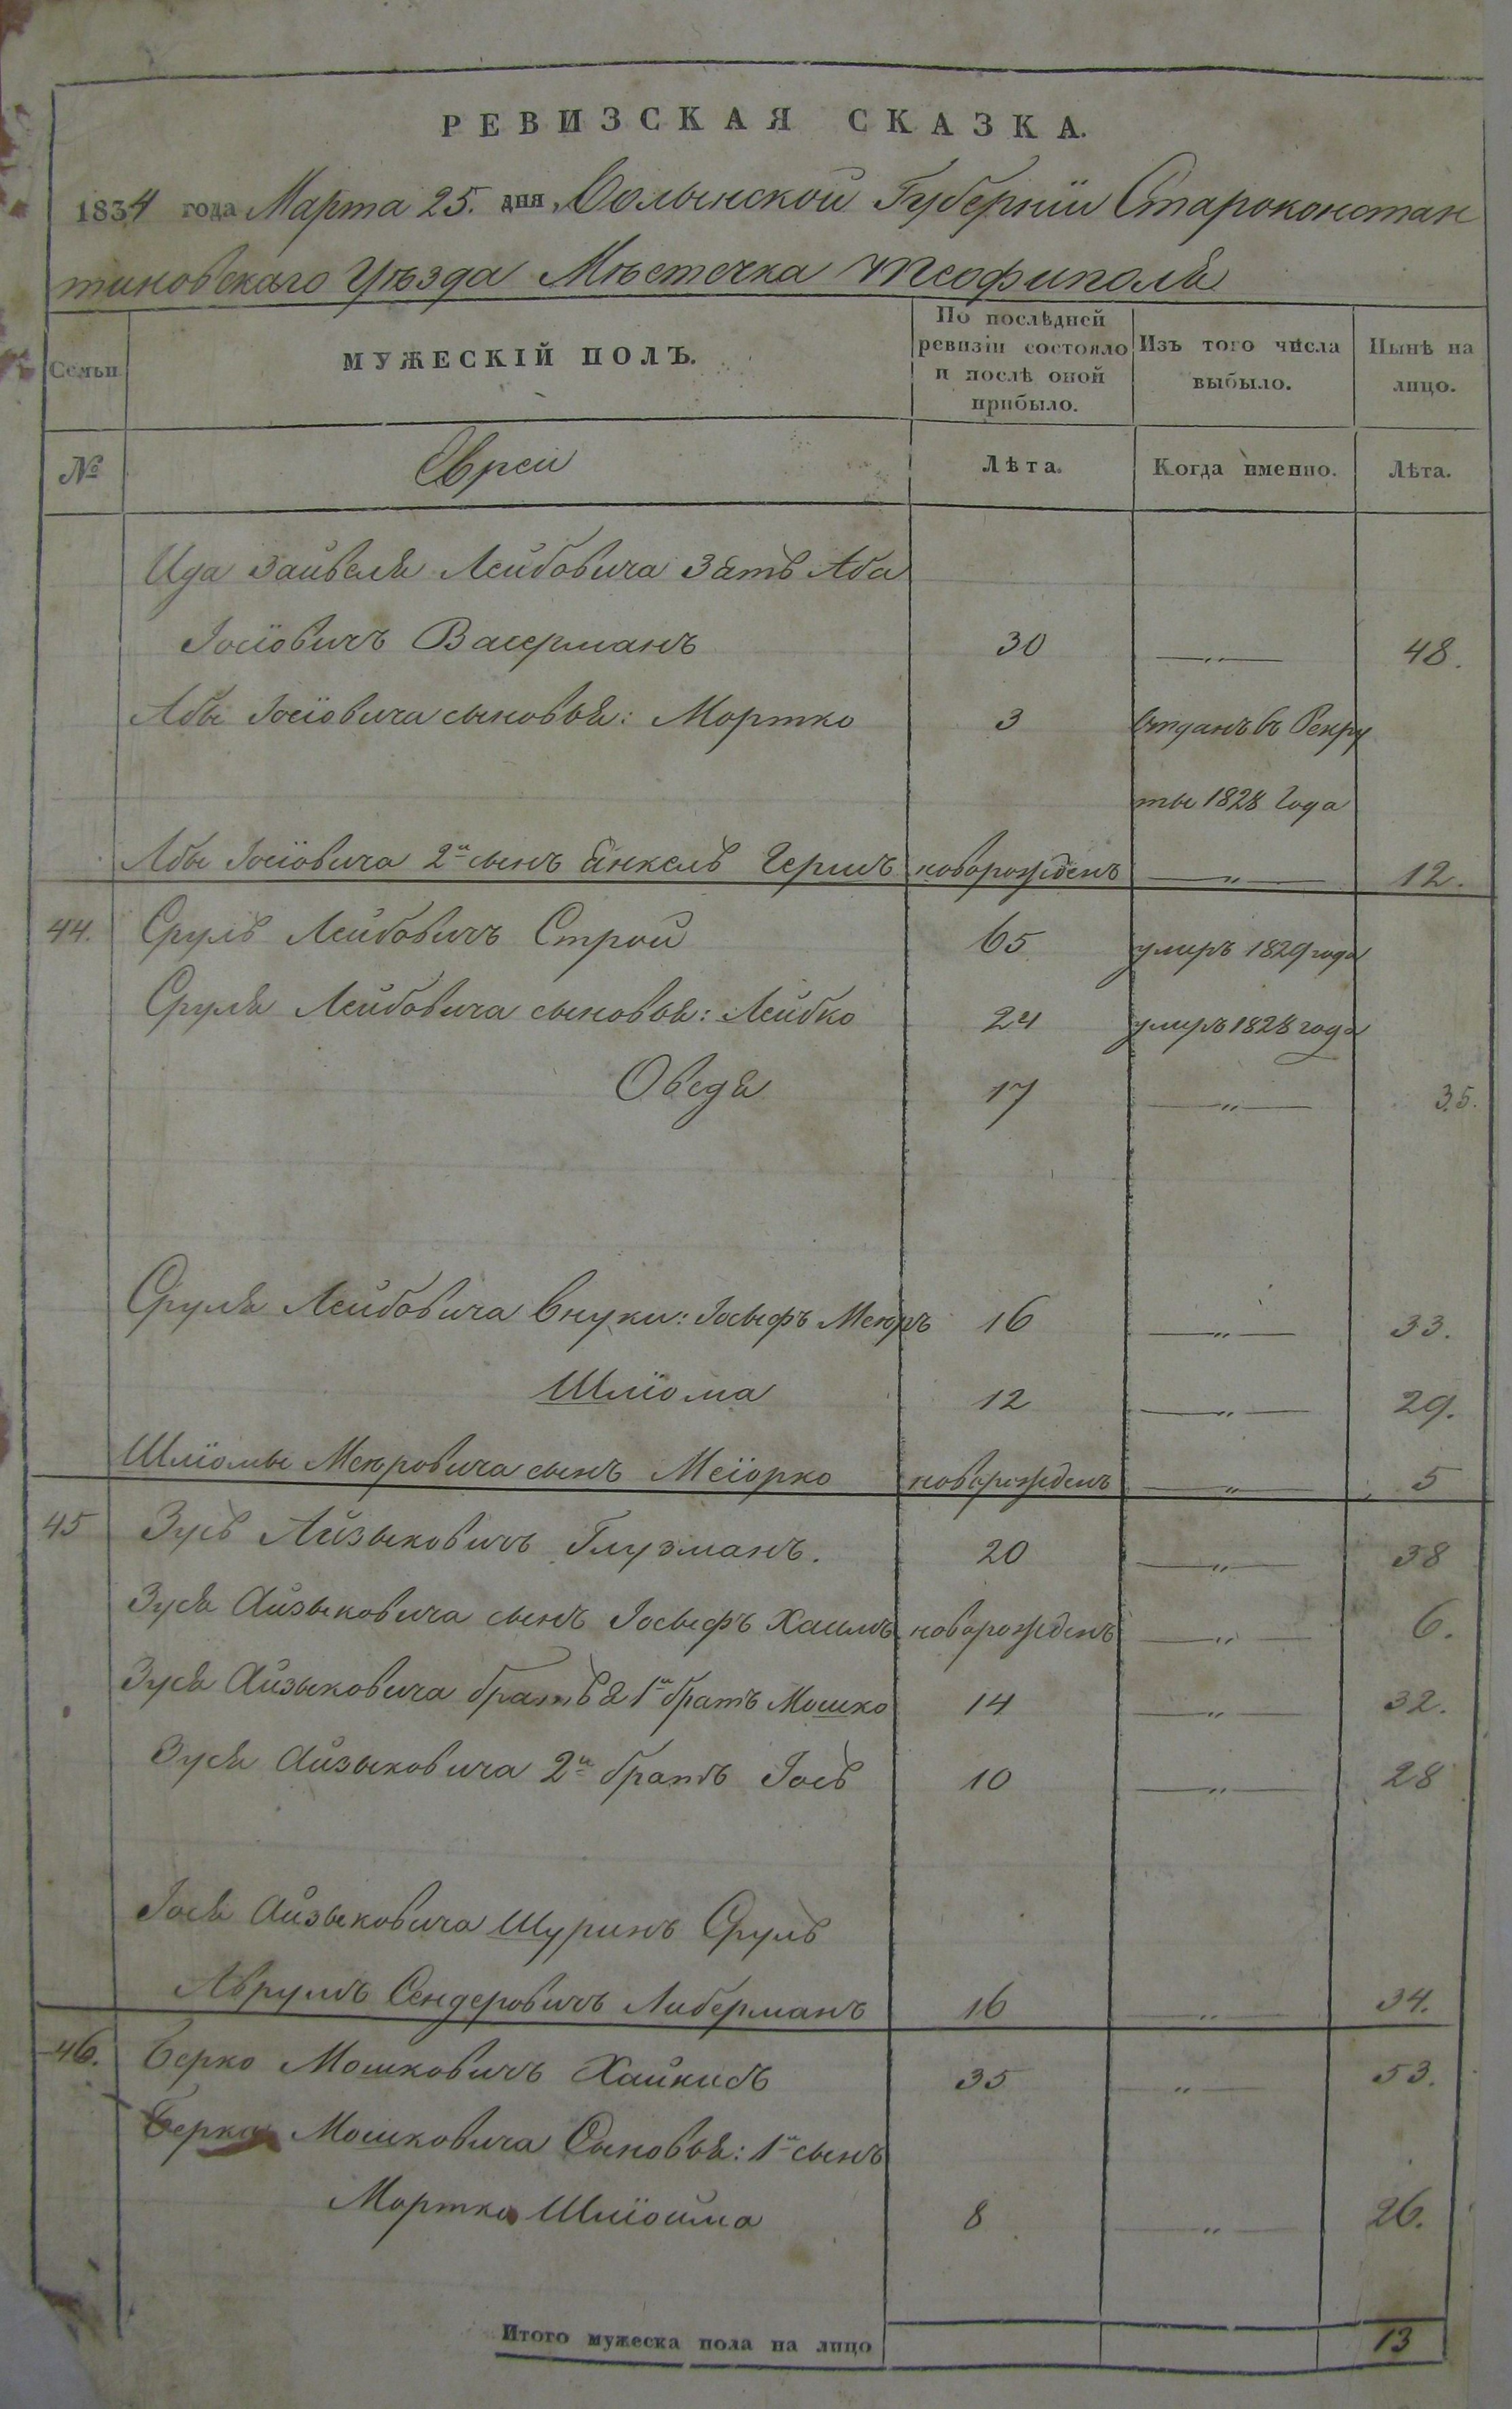 РЕВИЗСКАЯ СКАЗКА.
1834 года Марта 25. дня Волынской Губернїи Староконстан
тиновскаго Уѣзда Мѣстечка Теофиполя
Семьи
МУЖЕСКІЙ ПОЛЪ.
По послѣдней ревизіи состояло и послѣ оной прибыло.
Изъ того числа выбыло.
Нынѣ на лицо.
№
Евреи
Лѣта.
Когда именно.
Лѣта.
Ида Зайвеля Лейбовича Зять Аба
Іосїовичъ Васерманъ 30 —„— 48.
Абы Іосїовича сыновья: Мортко 3 Отданъ въ Рекру
ты 1828 года
Абы Іосїовича 2й сынъ Янкель Гершъ новорожденъ —„— 12.
44. Сруль Лейбовичъ Строй 65 умиръ 1829 года
Сруля Лейбовича сыновья: Лейбко 24 умиръ 1828 года
Овсдя 17 —„— 35.
Сруля Лейбовича внуки: Іосыфъ Меюръ 16 —„— 33.
Шлїома 12 —„— 29.
Шлїомы Меюровича сынъ Меїорко новорожденъ —„— 5
45 Зусь Айзыковичъ Глузманъ. 20 —„— 38
Зуся Айзыковича сынъ Іосыфъ Хаимъ новорожденъ —„— 6.
Зуся Айзыковича братья 1й братъ Мошко 14 —„— 32.
Зуся Айзыковича 2й братъ Іось 10 —„— 28
Іося Айзыковича Шуринъ Сруль
Аврумъ Сендеровичъ Либерманъ 16 —„— 34.
46. Берко Мошковичъ Хайкисъ 35 —„— 53.
Берка Мошковича Сыновья: 1й сынъ
Мортко Шлїойма 8 —„— 26.
Итого мужеска пола на лицо 13